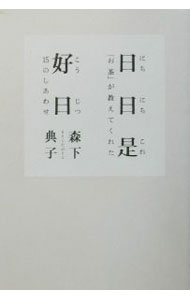 日日是
にちにちこれ
「お茶」が教えてくれた
好日
こうじつ
15のしあわせ
森下
典子